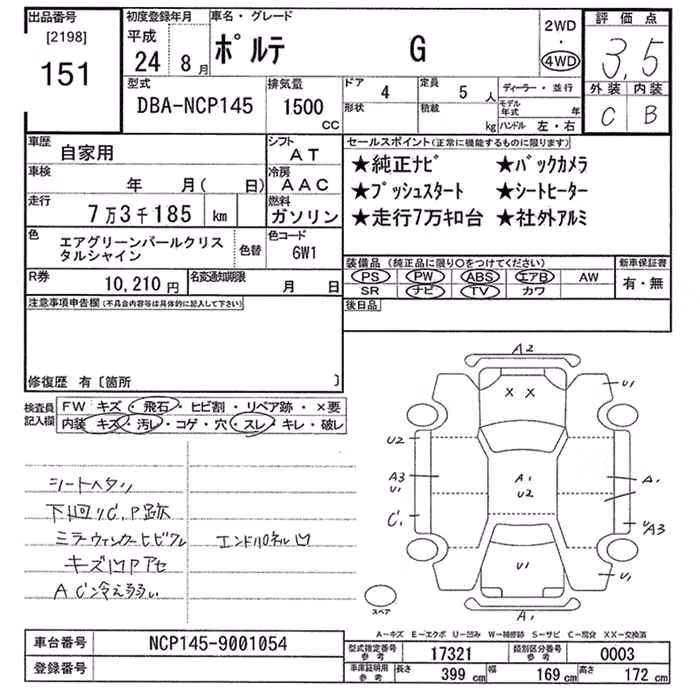 出品番号 初度登録年月 車名・グレード 2WD 評価点
[2198] 平成 ・
151 24 8月 ポルテ G 4WD 3.5
型式 排気量 ドア 4 定員 5 人 ディーラー・並行 外装 内装
DBA-NCP145 1500 CC 形状 積載 kg モデル年式 年 C B
ハンドル 左・右
車歴 自家用 シフト AT セールスポイント(正常に機能するものに限ります)
車検 年 月( 日) 冷房 AAC ★純正ナビ ★バックカメラ
走行 7万3千185 km 燃料 ガソリン ★プッシュスタート ★シートヒーター
★走行7万キロ台 ★社外アルミ
色 エアグリーンパールクリスタルシャイン 色替 色コード 6W1
装備品(純正品に限り○をつけてください) 新車保証書
R券 10,210円 名変通知期限 月 日 PS PW ABS エアB AW 有・無
SR ナビ TV カワ
注意事項申告欄(不具合内容等は具体的に記入して下さい) 後日品
修復歴 有〔箇所 〕
検査員記入欄 FW キズ・飛石・ヒビ割・リペア跡・×要
内装 キズ・汚レ・コゲ・穴・スレ・キレ・破レ
シートヘタリ
下回りC,P跡
ミラーウィンカーヒビワレ エンドパネル凹
キズ凹Pアセ
AC冷え弱い
A2
U1
X X
U2
A3
U1
A1
U2
A1
C1
A3
U1
U1
A1
スペア
A-キズ E-エクボ U-凹み W-補修跡 S-サビ C-腐食 XX-交換済
車台番号 NCP145-9001054 型式指定番号参考 17321 類別区分番号参考 0003
登録番号 車庫証明用参考 長さ 399 cm 幅 169 cm 高さ 172 cm